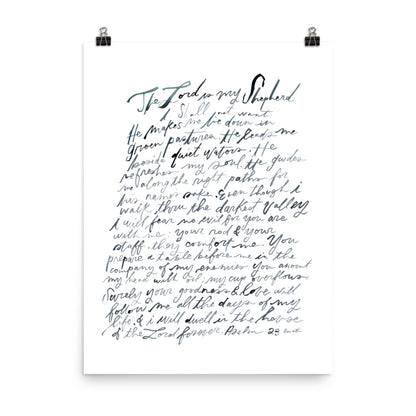 The Lord is my Shepherd
i Shall not want
He makes me lie down in
green pastures. He leads me
beside quiet waters. He
refreshes my soul. He guides
me along the right paths for
his names sake. Even though i
walk thru the darkest valley
i will fear no evil for you are
with me. your rod & your
staff they comfort me. You
prepare a table before me in the
company of my enemies you anoint
my head with oil; my cup overflows
Surely your goodness & love will
follow me all the days of my
life, & i will dwell in the house
of the Lord forever. Psalm 23